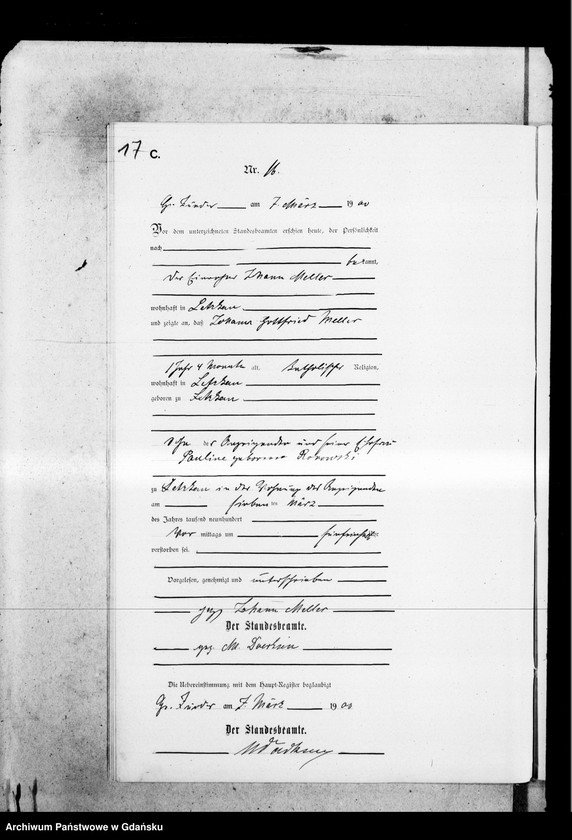 17 C.
Nr. 16.
Gr. Zünder am 7. März 1900
Vor dem unterzeichneten Standesbeamten erschien heute, der Persönlichkeit
nach
bekannt,
der Einwohner Johann Meller
wohnhaft in Letzkau
und zeigte an, daß Johann Gottfried Meller
1 Jahr 4 Monate alt, katholischer Religion,
wohnhaft in Letzkau
geboren zu Letzkau
Sohn des Anzeigenden und seiner Ehefrau
Pauline geborene
zu Letzkau in der Wohnung des Anzeigenden
am sieben ten März
des Jahres tausend neunhundert
Vor mittags um Uhr
verstorben sei.
Vorgelesen, genehmigt und unterschrieben
gez. Johann Meller
Der Standesbeamte.
gez. M.
Die Uebereinstimmung mit dem Haupt-Register beglaubigt
Gr. Zünder am 7. März 1900
Der Standesbeamte.
Archiwum Państwowe w Gdańsku